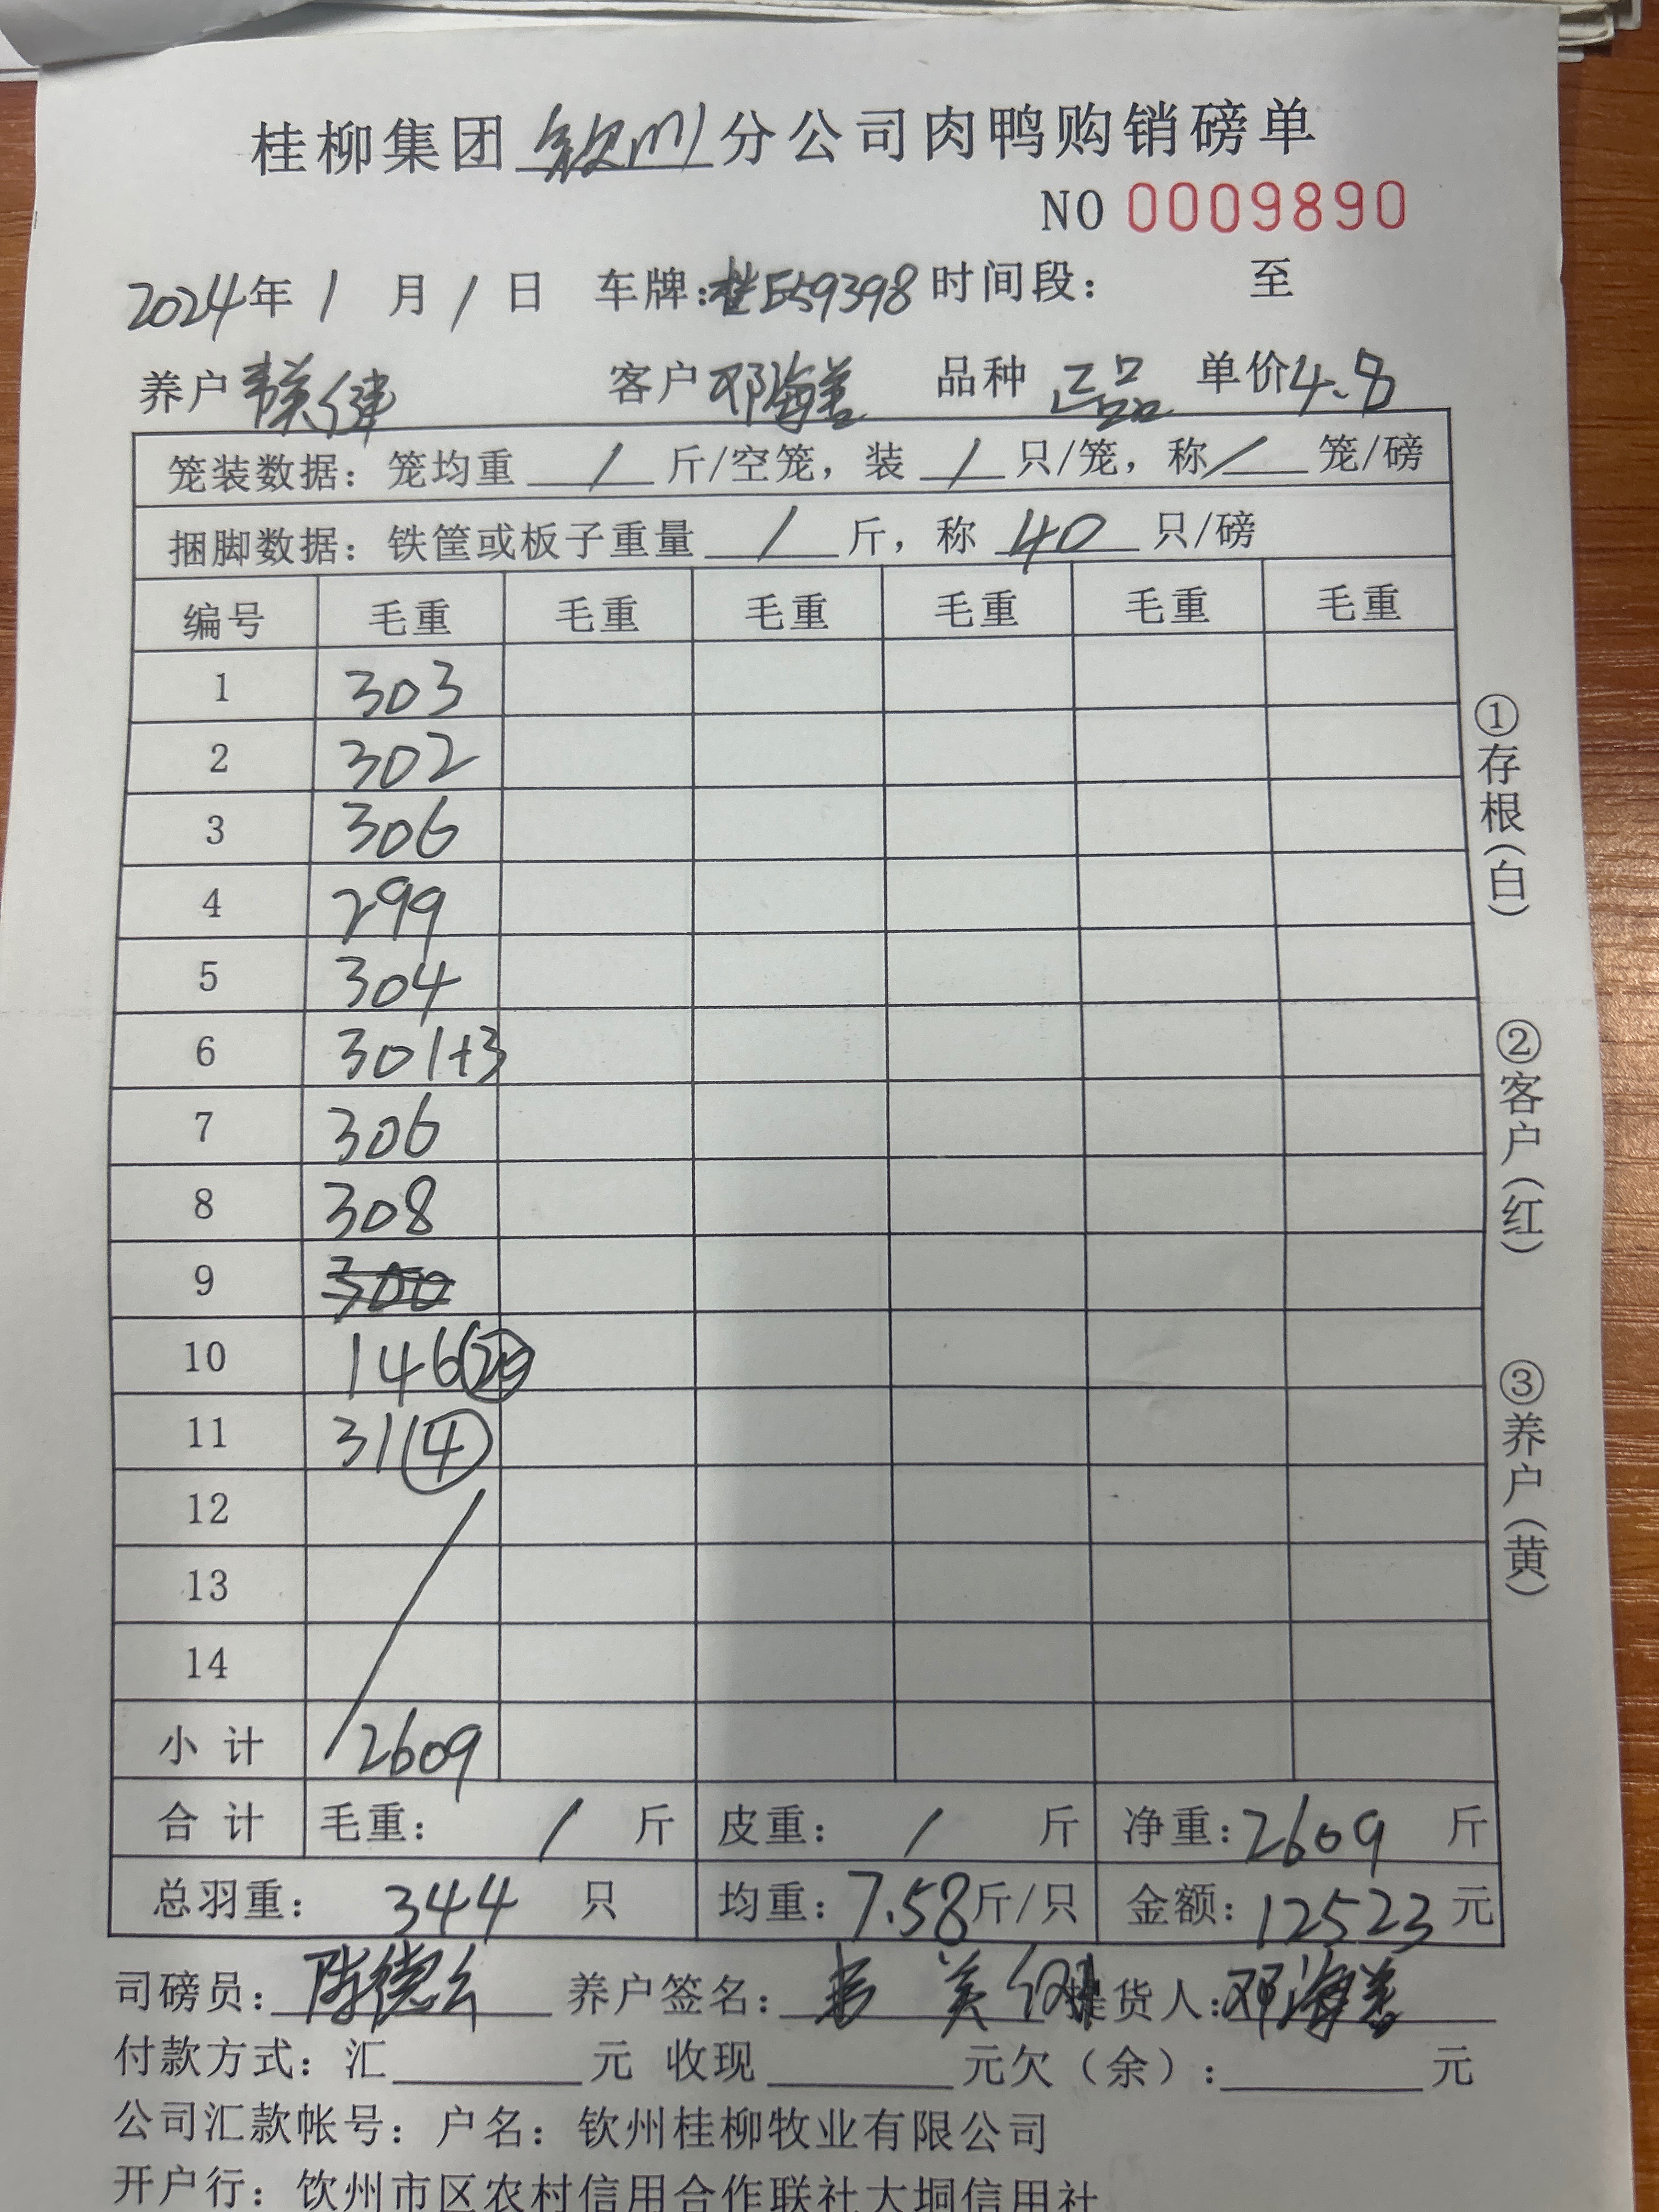 桂柳集团 钦州 分公司肉鸭购销磅单
NO 0009890
2024年 1 月 1 日 车牌:桂E59398 时间段: 至
养户 客户 邓海善 品种 正品 单价4.8
笼装数据: 笼均重 / 斤/空笼, 装 / 只/笼, 称 / 笼/磅
捆脚数据: 铁筐或板子重量 / 斤, 称 40 只/磅
编号 毛重 毛重 毛重 毛重 毛重 毛重
1 303
2 302
3 306
4 299
5 304
6 301+3
7 306
8 308
9 300
10 146
11 31④
12
13
14
小计 2609
合计 毛重: / 斤 皮重: / 斤 净重:2609 斤
总羽重: 344 只 均重:7.58斤/只 金额:12523元
司磅员: 养户签名: 提货人:邓海善
付款方式: 汇 元 收现 元欠(余): 元
公司汇款帐号: 户名: 钦州桂柳牧业有限公司
开户行: 钦州市区农村信用合作联社大垌信用社
①存根(白)
②客户(红)
③养户(黄)